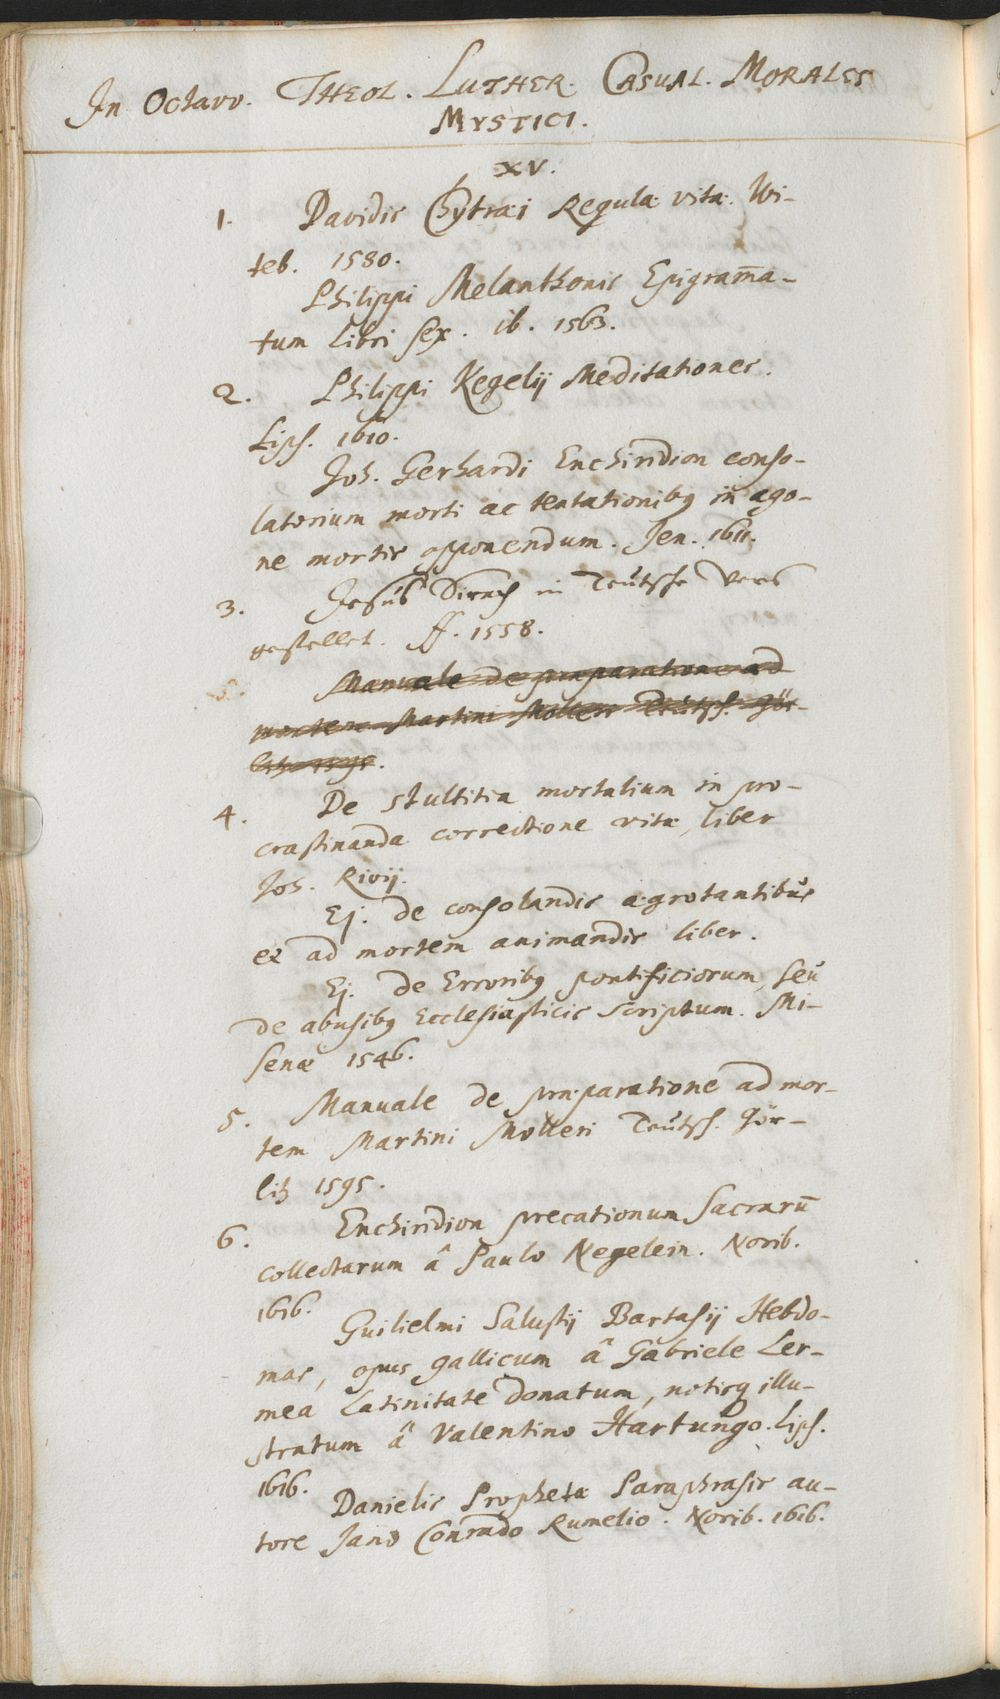 In Octavo. THEOL. LUTHER. CASUAL. MORALES
MYSTICI.
XV.
1. Davidis Chytræi Regula vitæ. Wi-
teb. 1580.
Philippi Melanthonis Epigram̄a-
tum libri sex. ib. 1563.
2. Philippi Kegelij Meditationes.
Lips. 1610.
Joh. Gerhardi Enchiridion conso-
latorium morti ac tentationibꝫ in ago-
ne mortis opponendum. Jen. 1611.
3. Jesus Sirach in Teutsche Vers
gestellet. ff. 1558.
5. Manuale de præparatione ad
mortem Martini Molleri Teutsch. Gör-
litz 1595.
4. De stultitia mortalium in pro-
crastinanda correctione vitæ, liber
Joh. Rivij.
Ej. de consolandis ægrotantibus
et ad mortem animandis liber.
Ej. de Erroribꝫ pontificiorum, seu
de abusibꝫ Ecclesiasticis scriptum. Mi-
senæ 1546.
5. Manuale de præparatione ad mor-
tem Martini Molleri Teutsch. Gör-
litz 1595.
6. Enchiridion precationum Sacrarū
collectarum â Paulo Negelein. Norib.
1616.
Guilielmi Salustij Bartasij Hebdo-
mas, opus gallicum â Gabriele Ler-
mea Latinitate donatum, notisq illu-
stratum â Valentino Hartungo. Lips.
1616.
Danielis Prophetæ Paraphrasis au-
tore Jano Conrado Rumelio. Norib. 1616.